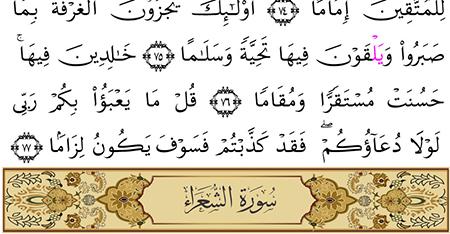 لِلْمُتَّقِينَ إِمَامًا ۝٧٤ أُوْلَـٰٓئِكَ يُجْزَوْنَ الْغُرْفَةَ بِمَا
صَبَرُواْ وَيَلْقَوْنَ فِيهَا تَحِيَّةً وَسَلَـٰمًا ۝٧٥ خَـٰلِدِينَ فِيهَا ۚ
حَسُنَتْ مُسْتَقَرًّا وَمُقَامًا ۝٧٦ قُلْ مَا يَعْبَؤُاْ بِكُمْ رَبِّى
لَوْلَا دُعَآؤُكُمْ ۖ فَقَدْ كَذَّبْتُمْ فَسَوْفَ يَكُونُ لِزَامًۢا ۝٧٧
سُورَةُ الشُّعَرَاءِ